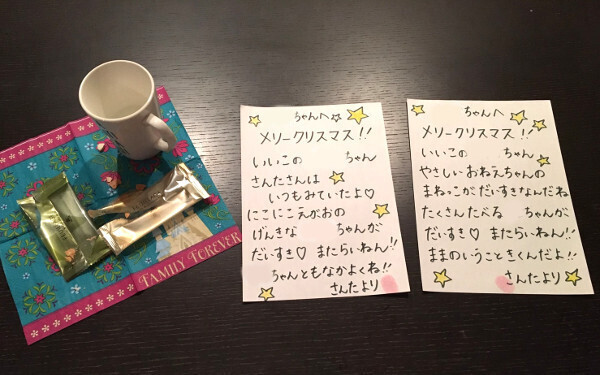 ちゃんへ
メリークリスマス!!
いいこの ちゃん
さんたさんは
いつもみていたよ♡
にこにこえがおの
げんきな ちゃんが
だいすき♡ またらいねん!!
ちゃんともなかよくね!!
さんたより
ちゃんへ
メリークリスマス!!
いいこの ちゃん
やさしいおねえちゃんの
まねっこがだいすきなんだね
たくさんたべる ちゃんが
だいすき♡ またらいねん!!
ままのいうこときくんだよ!!
さんたより
FAMILY FOREVER